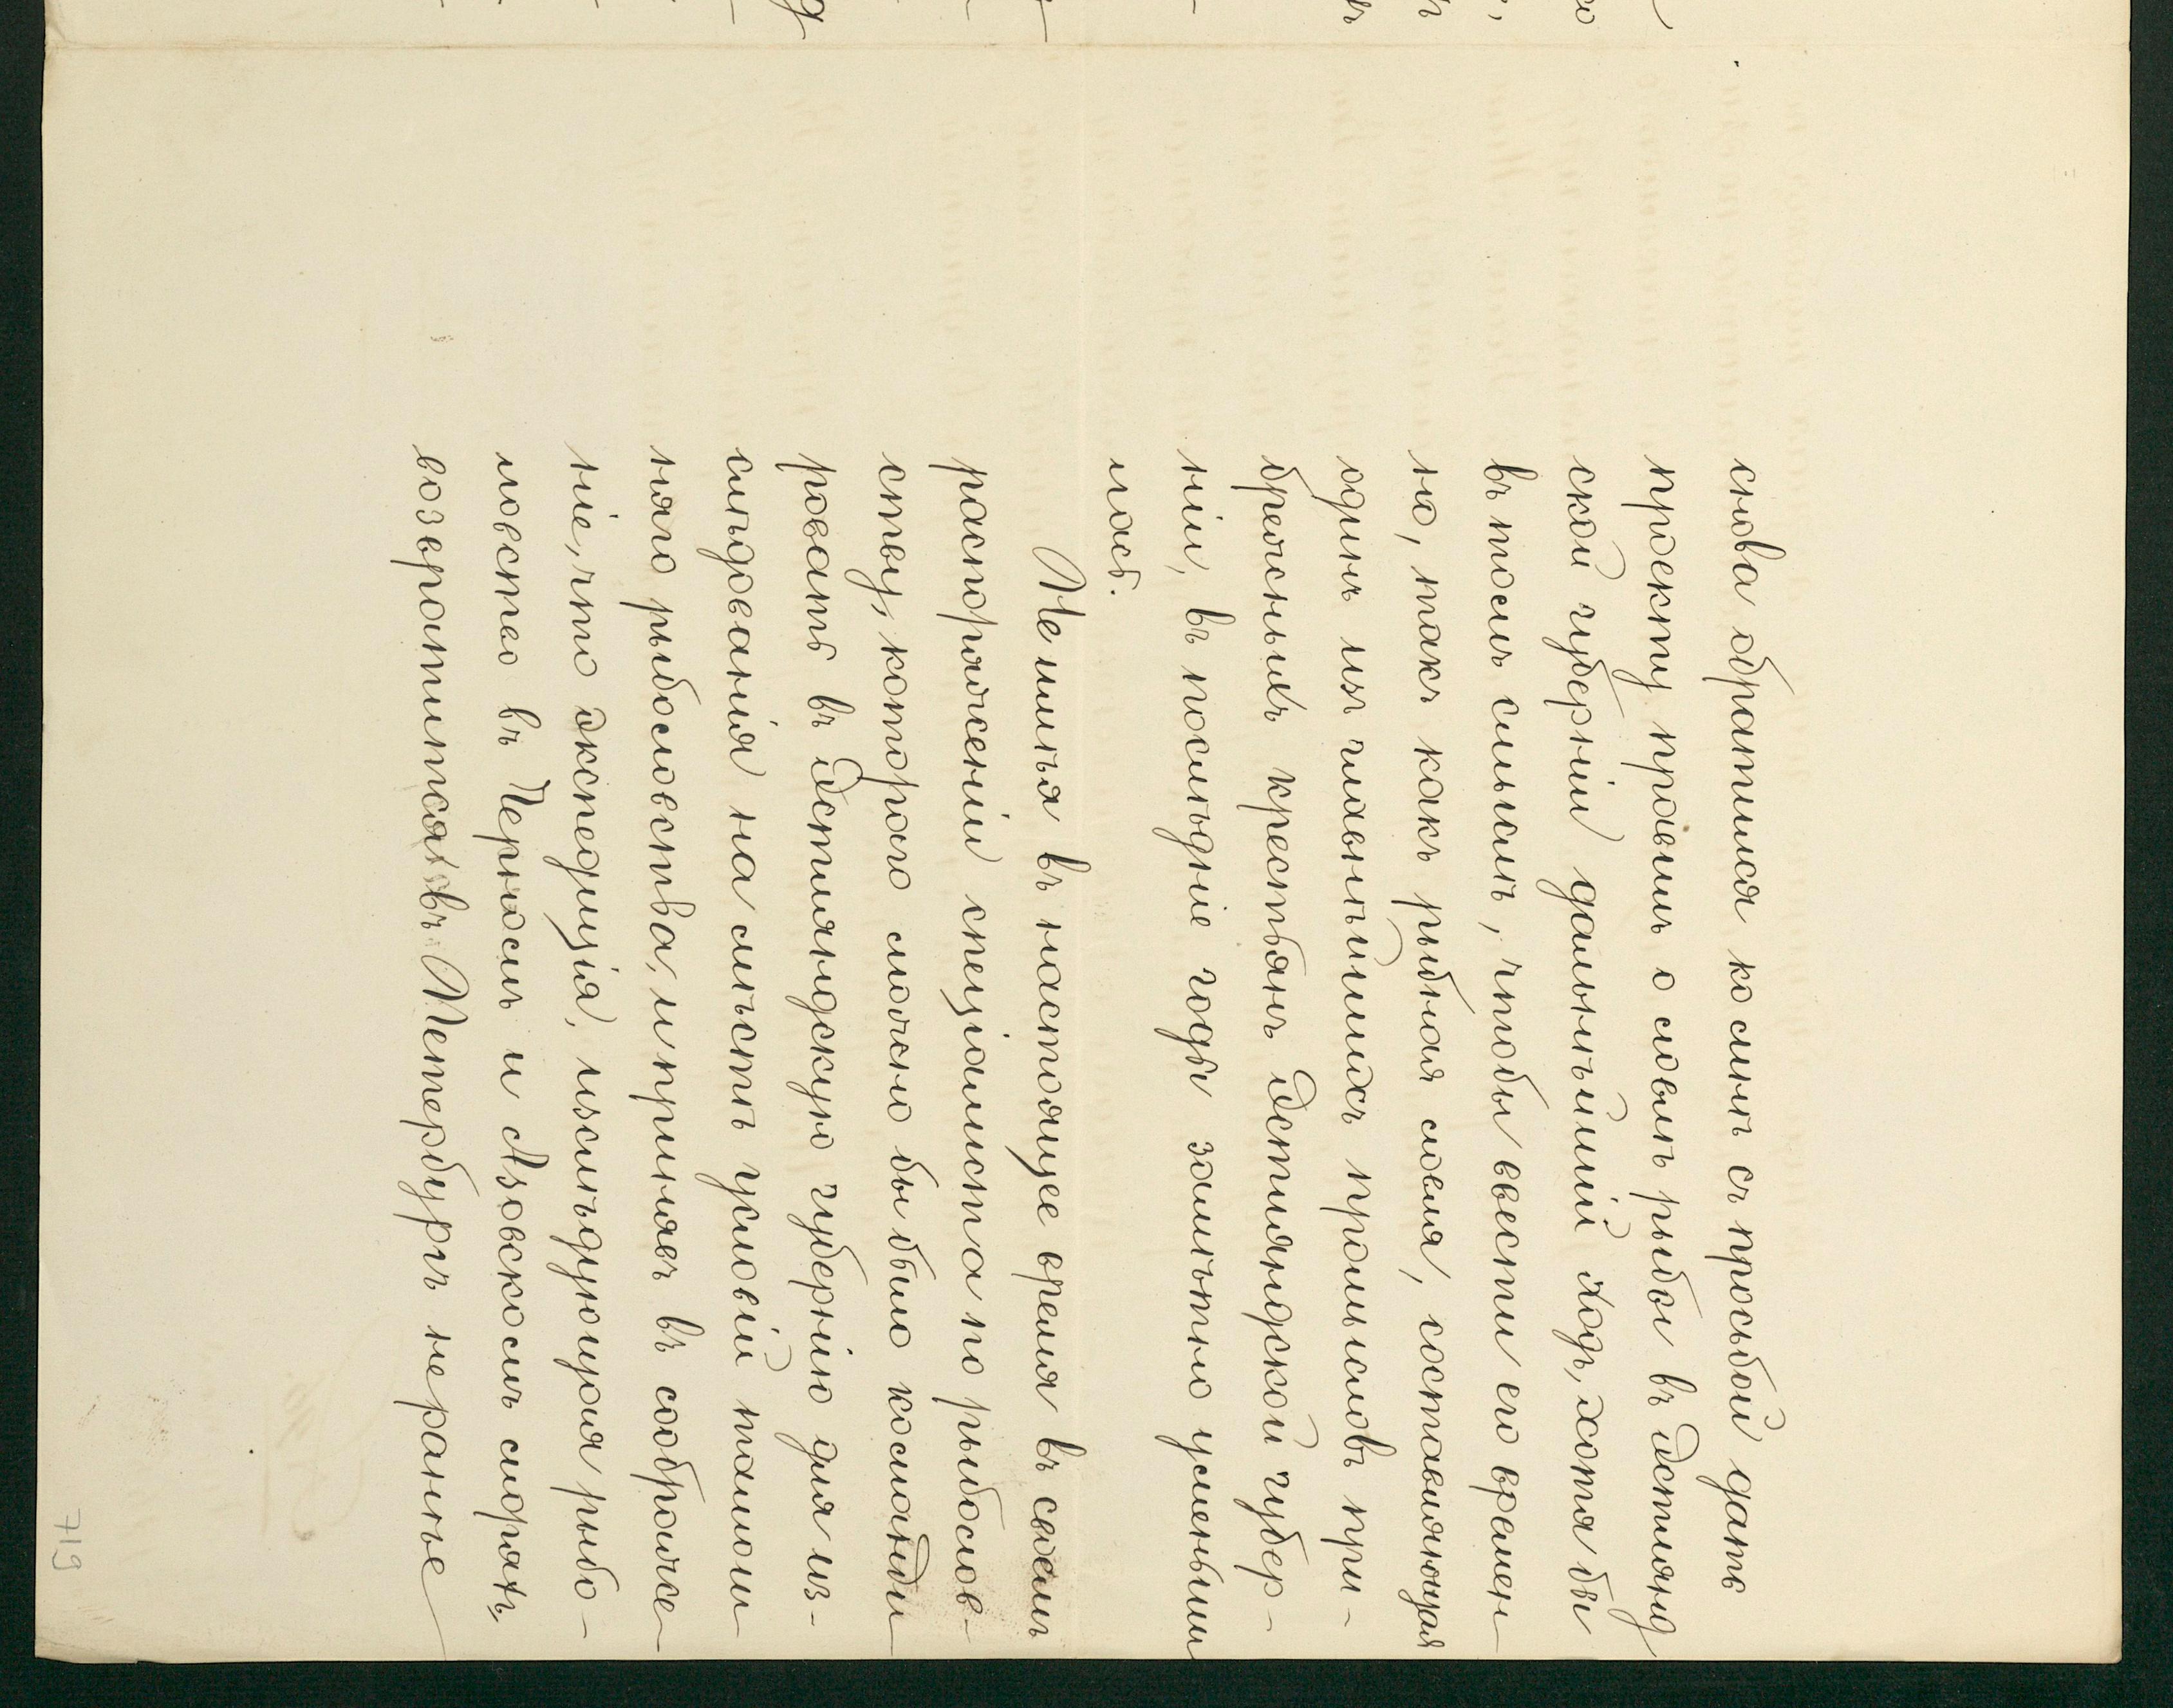 снова обратился ко мнѣ съ просьбой дать
проекту правилъ о ловлѣ рыбы въ Эстлянд
ской губерніи дальнѣйшій ходъ, хотя бы
въ томъ смыслѣ, чтобы ввести его времен
но, такъ какъ рыбная ловля, составляющая
одинъ изъ главнѣйшихъ промысловъ при-
брежныхъ крестьянъ Эстляндской губер-
ніи, въ послѣдніе годы замѣтно уменьши
лась.
Не имѣя въ настоящее время въ своемъ
распоряженіи спеціалиста по рыболов-
ству, котораго можно бы было команди
ровать въ Эстляндскую губернію для из-
слѣдованія на мѣстѣ условій тамош
няго рыболовства, и принявъ въ соображе
ніе, что экспедиція, изслѣдующая рыбо-
ловство въ Черномъ и Азовскомъ моряхъ,
возвратится въ Петербургъ не ранѣе
719